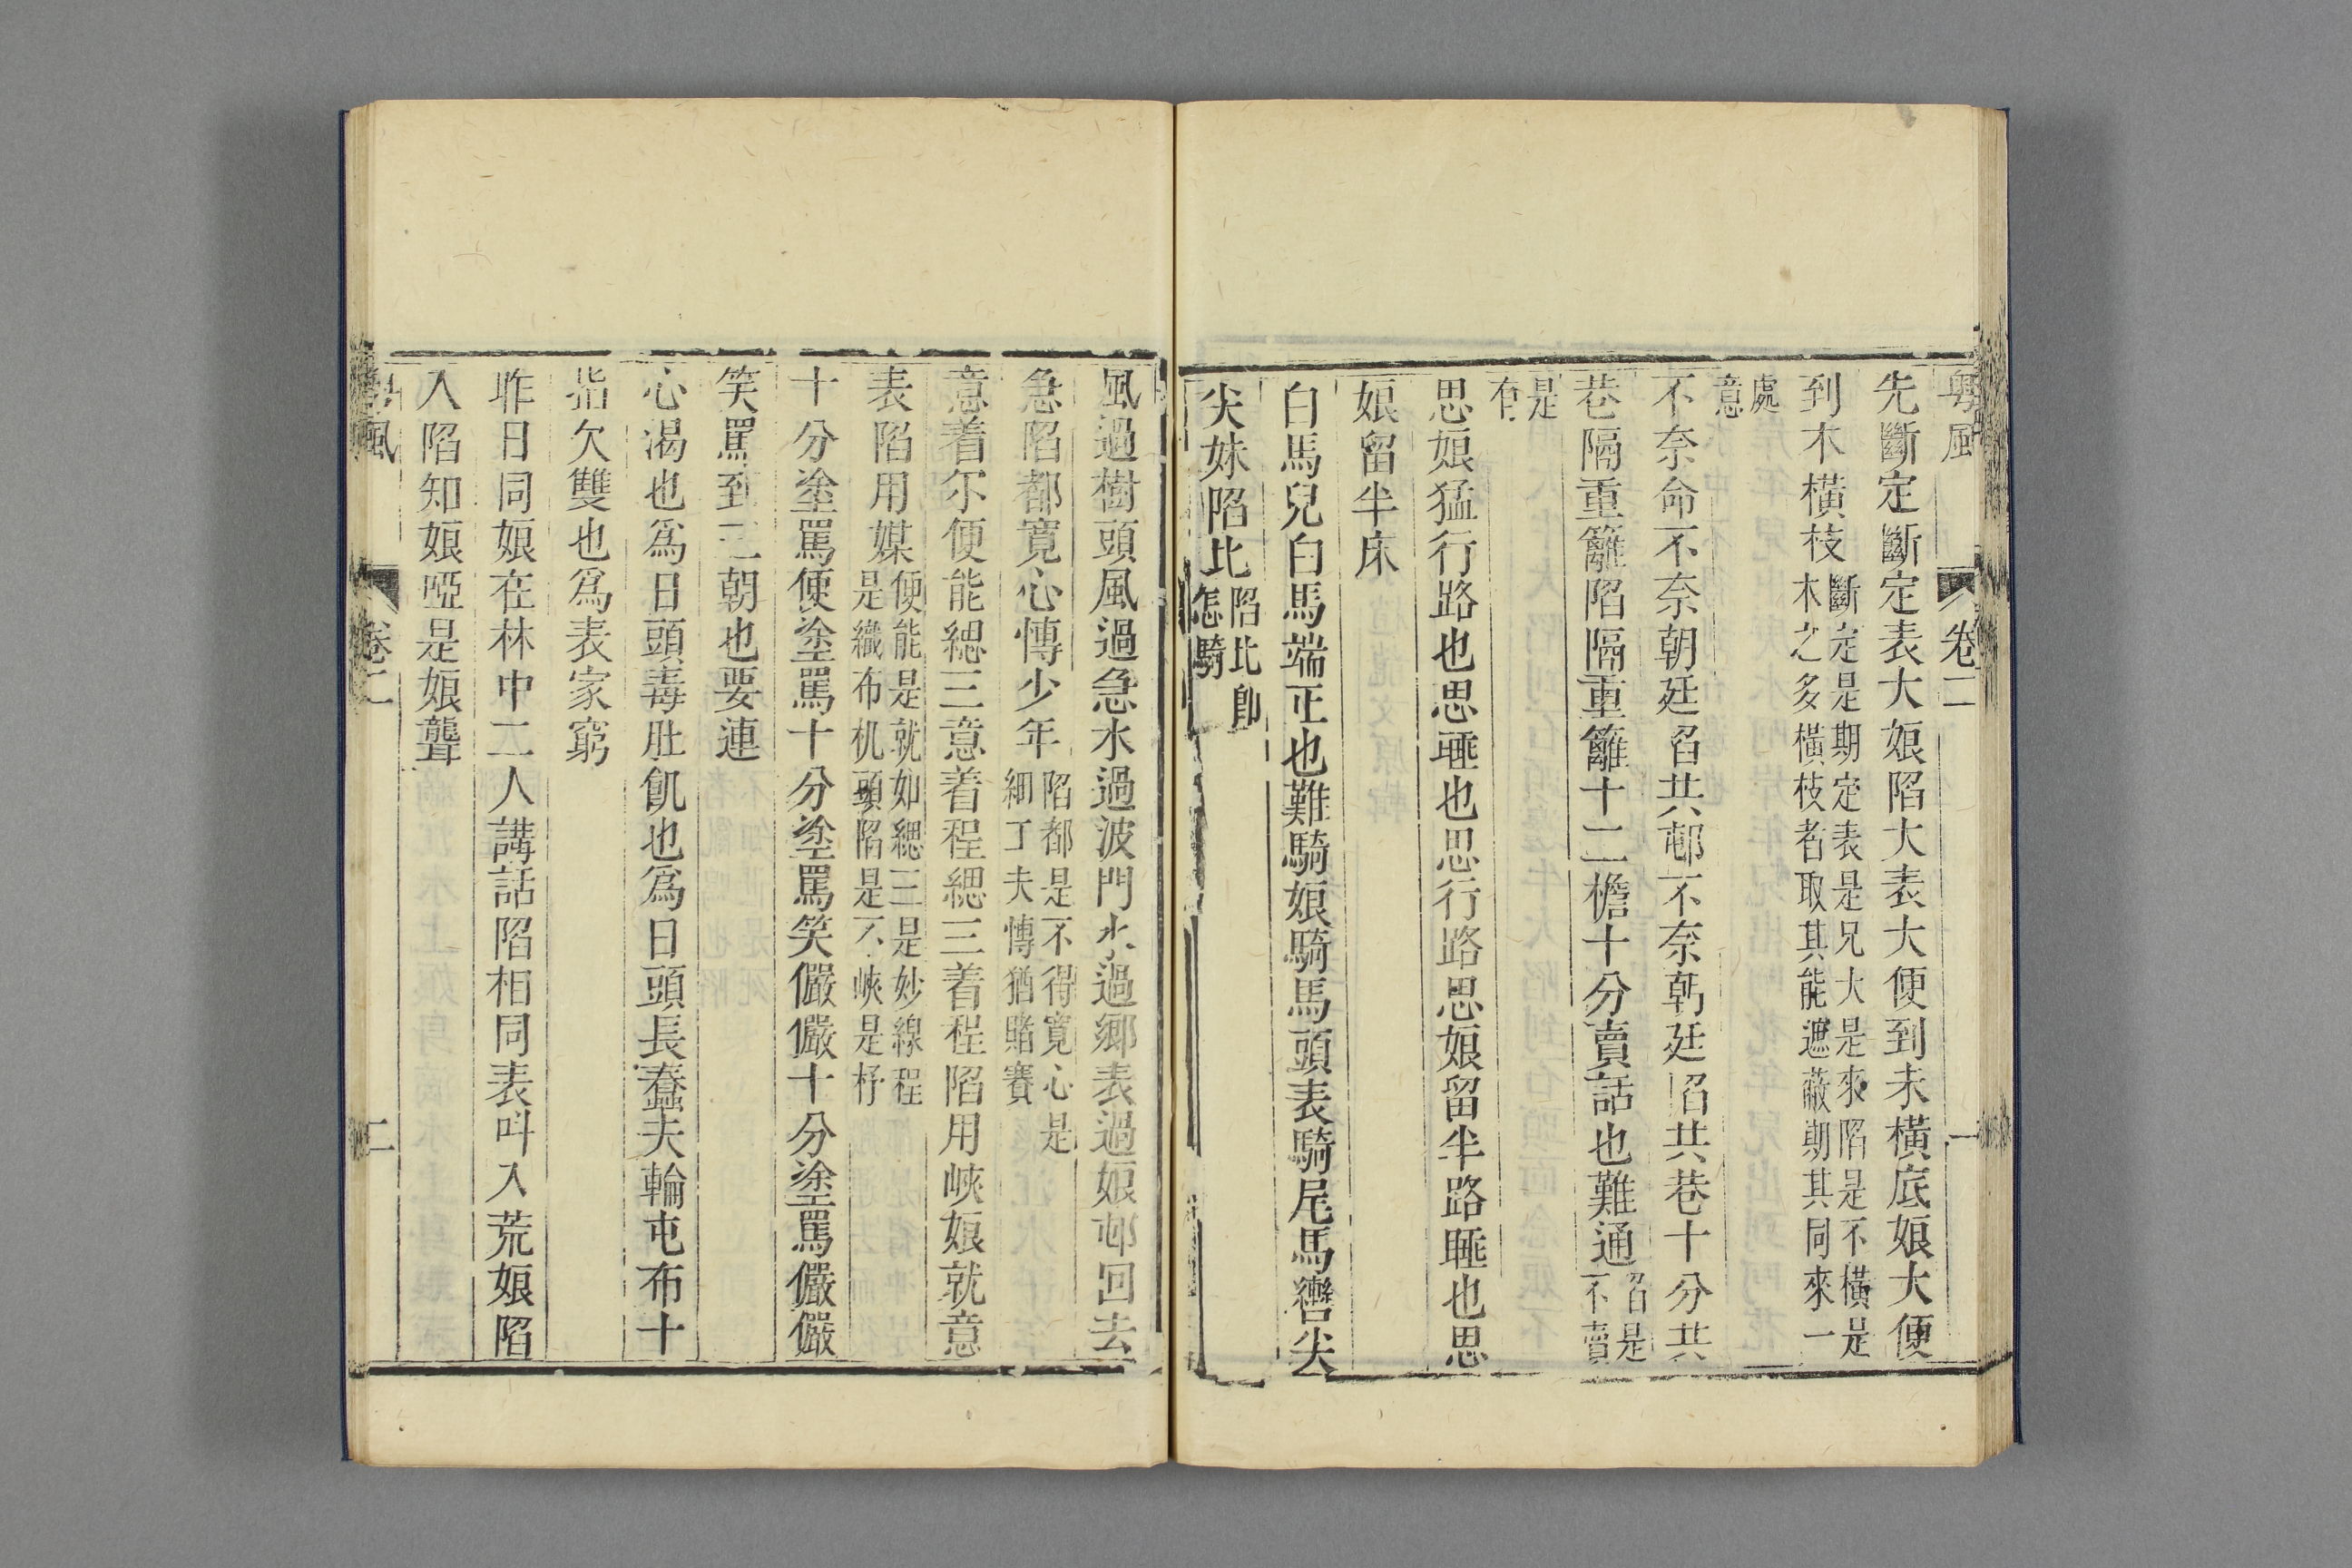 粤風 卷二 一
先斷定斷定表大娘陷大表大便到未橫底娘大便
到木橫枝
斷定是期定表是兄大是來陷是不橫是
木之多橫枝者取其能遮蔽期其同來一
處
意
不奈命不奈朝廷㕛共邨不奈朝廷㕛共巷十分共
巷隔重籬陷隔重籬十二檐十分賣話也難通
㕛是
不賣
是
冇
思娘猛行路也思𨁏也思行路思娘留半路𨁏也思
娘留半床
白馬兒白馬端正也難騎娘騎馬頭表騎尾馬轡尖
尖妹陷比
陷比卽
怎騎
風過樹頭風過急水過波門水過鄉表過娘邨回去
急陷都寬心慱少年
陷都是不得寬心是
細丁夫慱猶賭賽
意着尔便能緦三意着程緦三着程陷用峽娘就意
表陷用媒
便能是就如緦三是妙線程
是織布机頭陷是不峽是杼
十分塗罵便塗罵十分塗罵笑儼儼十分塗罵儼儼
笑罵到三朝也要連
心渴也爲日頭毒肚飢也爲日頭長蠢夫輪屯布十
指欠雙也爲表家窮
昨日同娘在林中二人講話陷相同表呌入荒娘陷
入陷知娘啞是娘聾
粤風 卷二 二